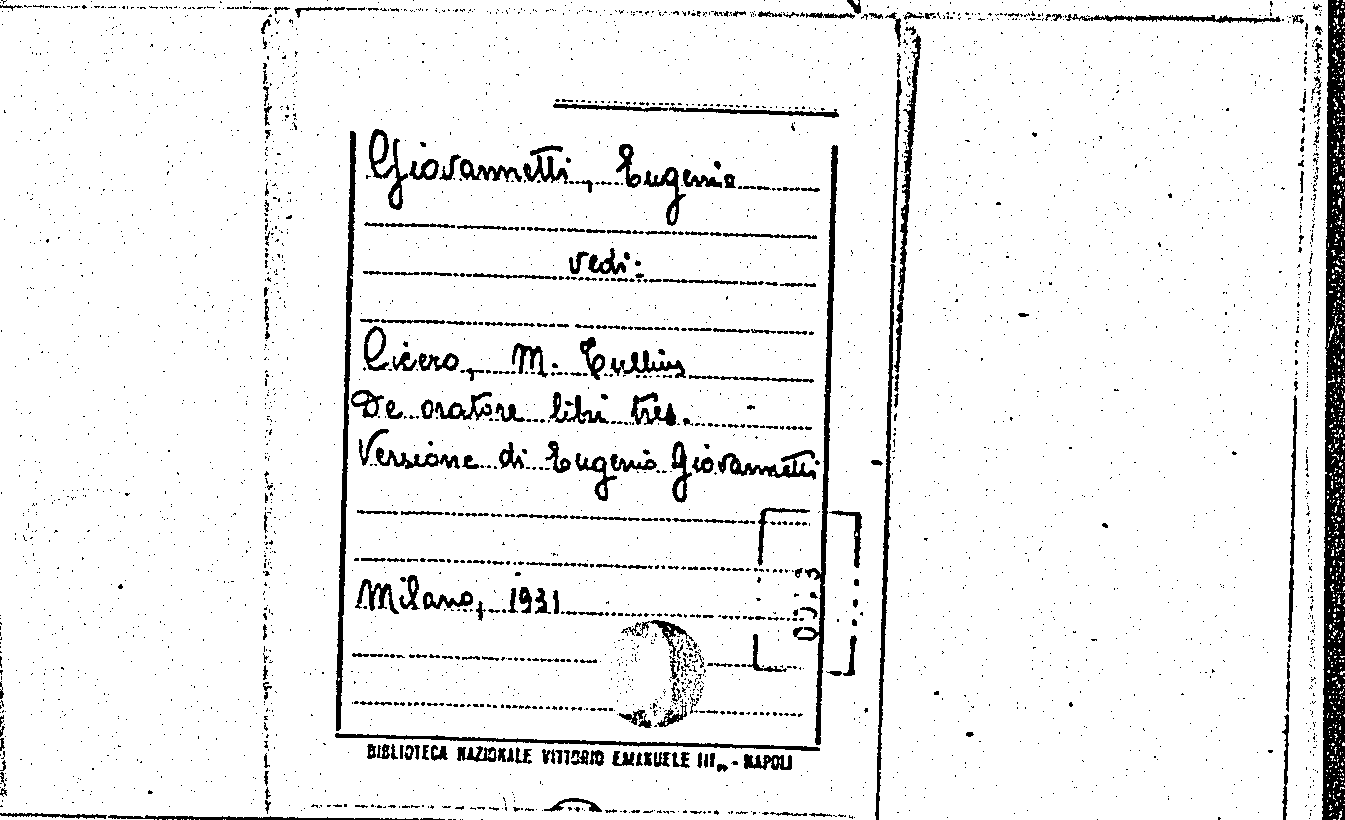 Giovannetti, Eugenio
vedi:
Cicero, M. Tullius
De oratore libri tres.
Versione di Eugenio Giovannetti
Milano, 1931
BIBLIOTECA NAZIONALE VITTORIO EMANUELE III - NAPOLI